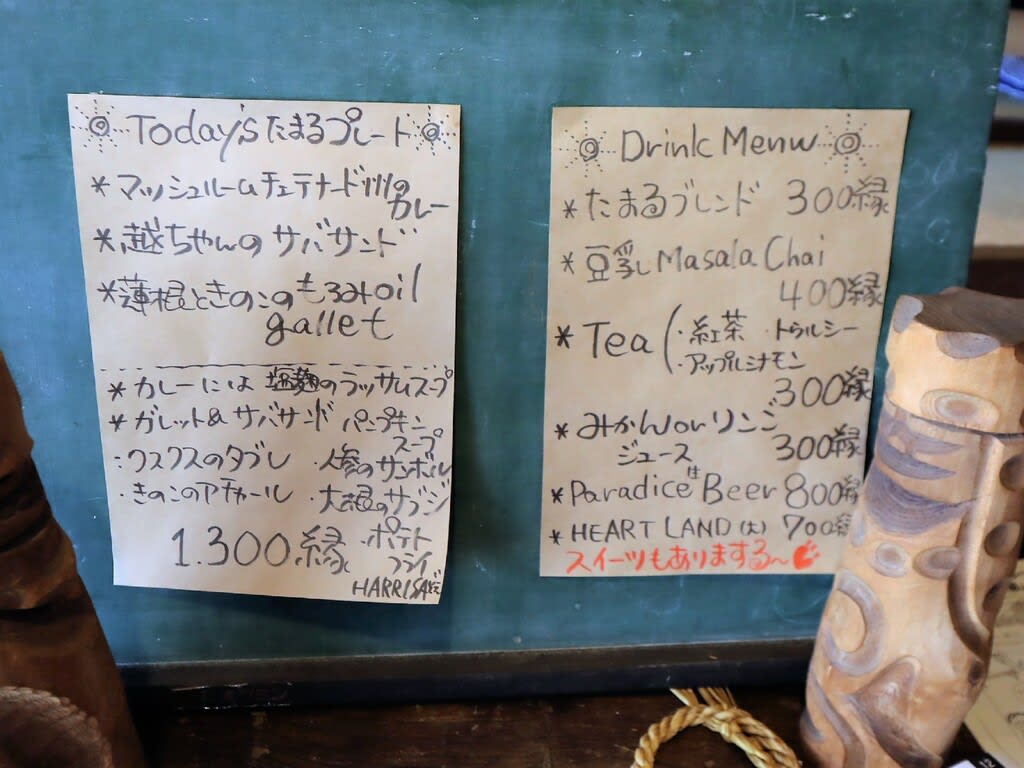 Today's たまるプレート
* マッシュルームチェテナード州の
カレー
* 越ちゃんの サバサンド
* 蓮根ときのこのもろみoil
gallet
* カレーには 塩麹のラッサムスープ
* ガレット&サバサンド パンプキン
スープ
:クスクスのタブレ ・人参のサンボル
・きのこのアチャール ・大根のサブジ
1.300縁 ・ポテト
フライ
HARRISA
Drink Menu
* たまるブレンド 300縁
* 豆乳 Masala Chai
400縁
* Tea (・紅茶 ・トゥルシー
・アップルシナモン
300縁
* みかん or リンゴ
ジュース 300縁
* Paradice Beer 800縁
* HEART LAND (大) 700縁
スイーツもありまする〜